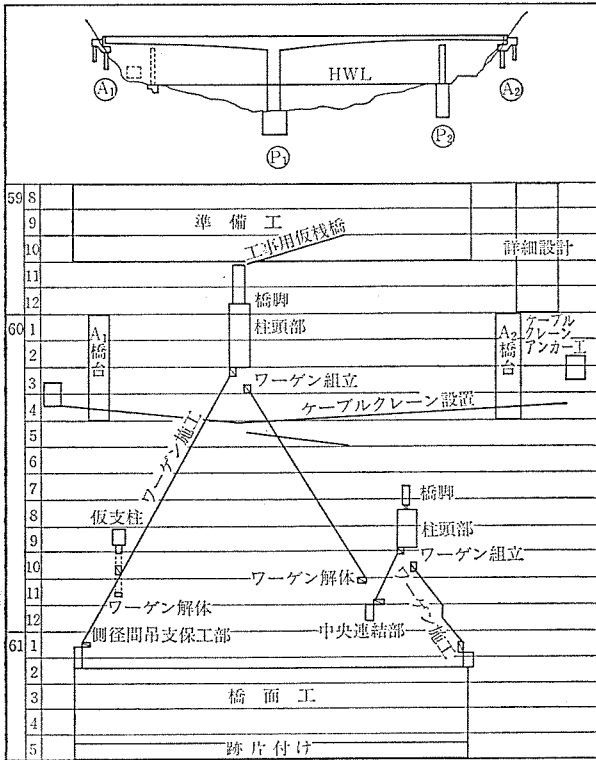 HWL
A₁
A₂
P₁
P₂
59
8
9
10
11
12
60
1
2
3
4
5
6
7
8
9
10
11
12
61
1
2
3
4
5
準備工
工事用仮桟橋
詳細設計
橋脚
柱頭部
A₁橋台
A₂橋台
ケーブル
クレーン
アンカー工
ワーゲン組立
ケーブルクレーン設置
ワーゲン施工
橋脚
仮支柱
柱頭部
ワーゲン組立
ワーゲン解体
ワーゲン解体
ワーゲン施工
側径間吊支保工部
中央連結部
橋面工
跡片付け